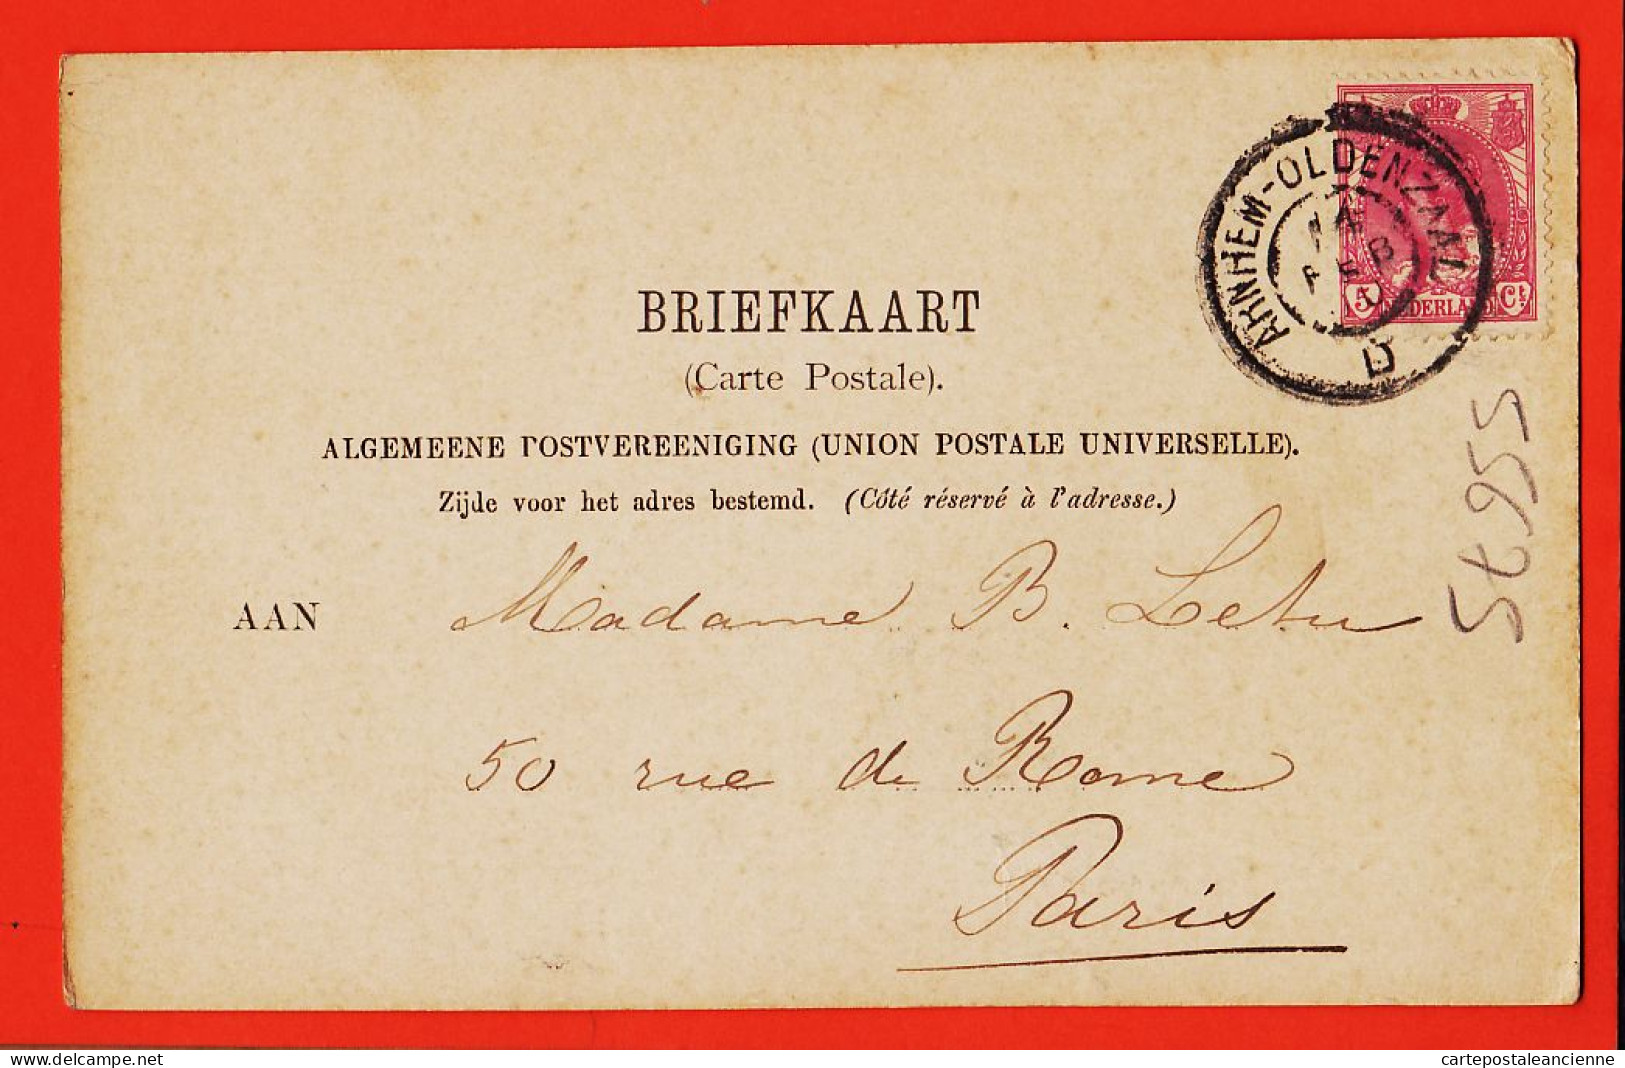 ARNHEM-OLDENZAAL
14
FEB
D
5 NEDERLAND Ct
BRIEFKAART
(Carte Postale).
ALGEMEENE POSTVEREENIGING (UNION POSTALE UNIVERSELLE).
Zijde voor het adres bestemd. (Côté réservé à l'adresse.)
AAN Madame B. Letu
50 rue de Rome
Paris
cartepostaleancienne